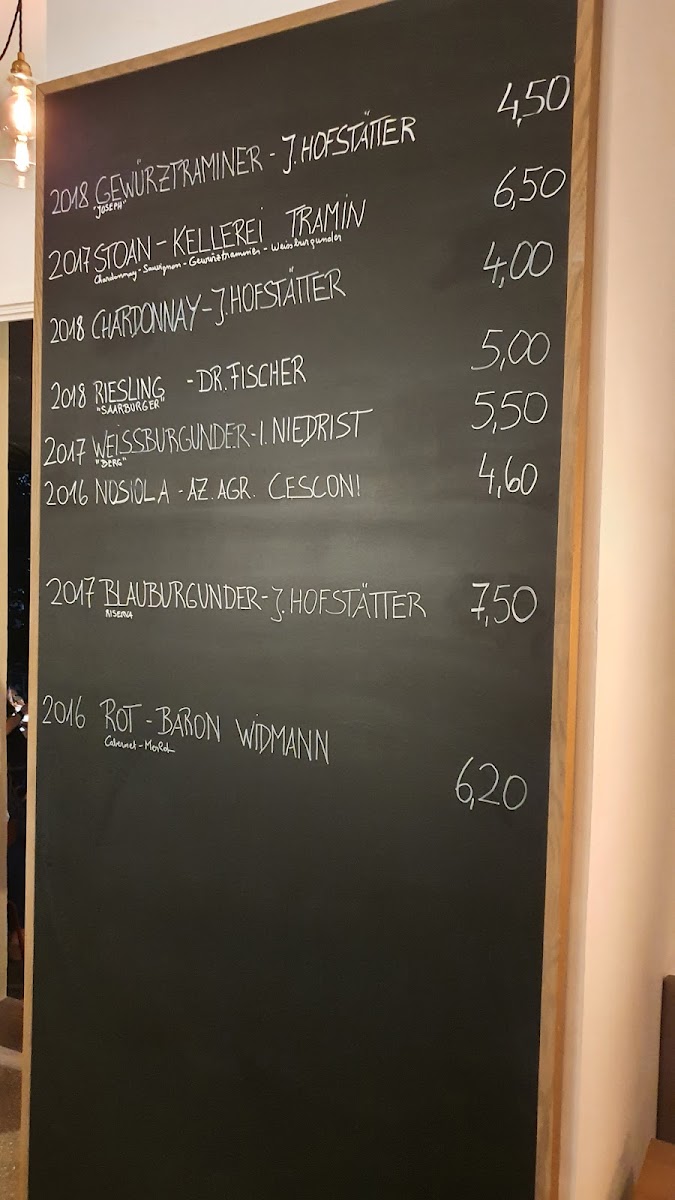 2018 GEWÜRZTRAMINER - J. HOFSTÄTTER 4,50
"JOSEPH"
2017 STOAN - KELLEREI TRAMIN 6,50
Chardonnay - Sauvignon - Gewürztraminer - Weissburgunder
2018 CHARDONNAY - J. HOFSTÄTTER 4,00
2018 RIESLING - DR. FISCHER 5,00
"SAARBURGER"
2017 WEISSBURGUNDER - I. NIEDRIST 5,50
"BERG"
2016 NOSIOLA - AZ. AGR. CESCONI 4,60
2017 BLAUBURGUNDER - J. HOFSTÄTTER 7,50
RISERVA
2016 ROT - BARON WIDMANN
Cabernet - Merlot
6,20